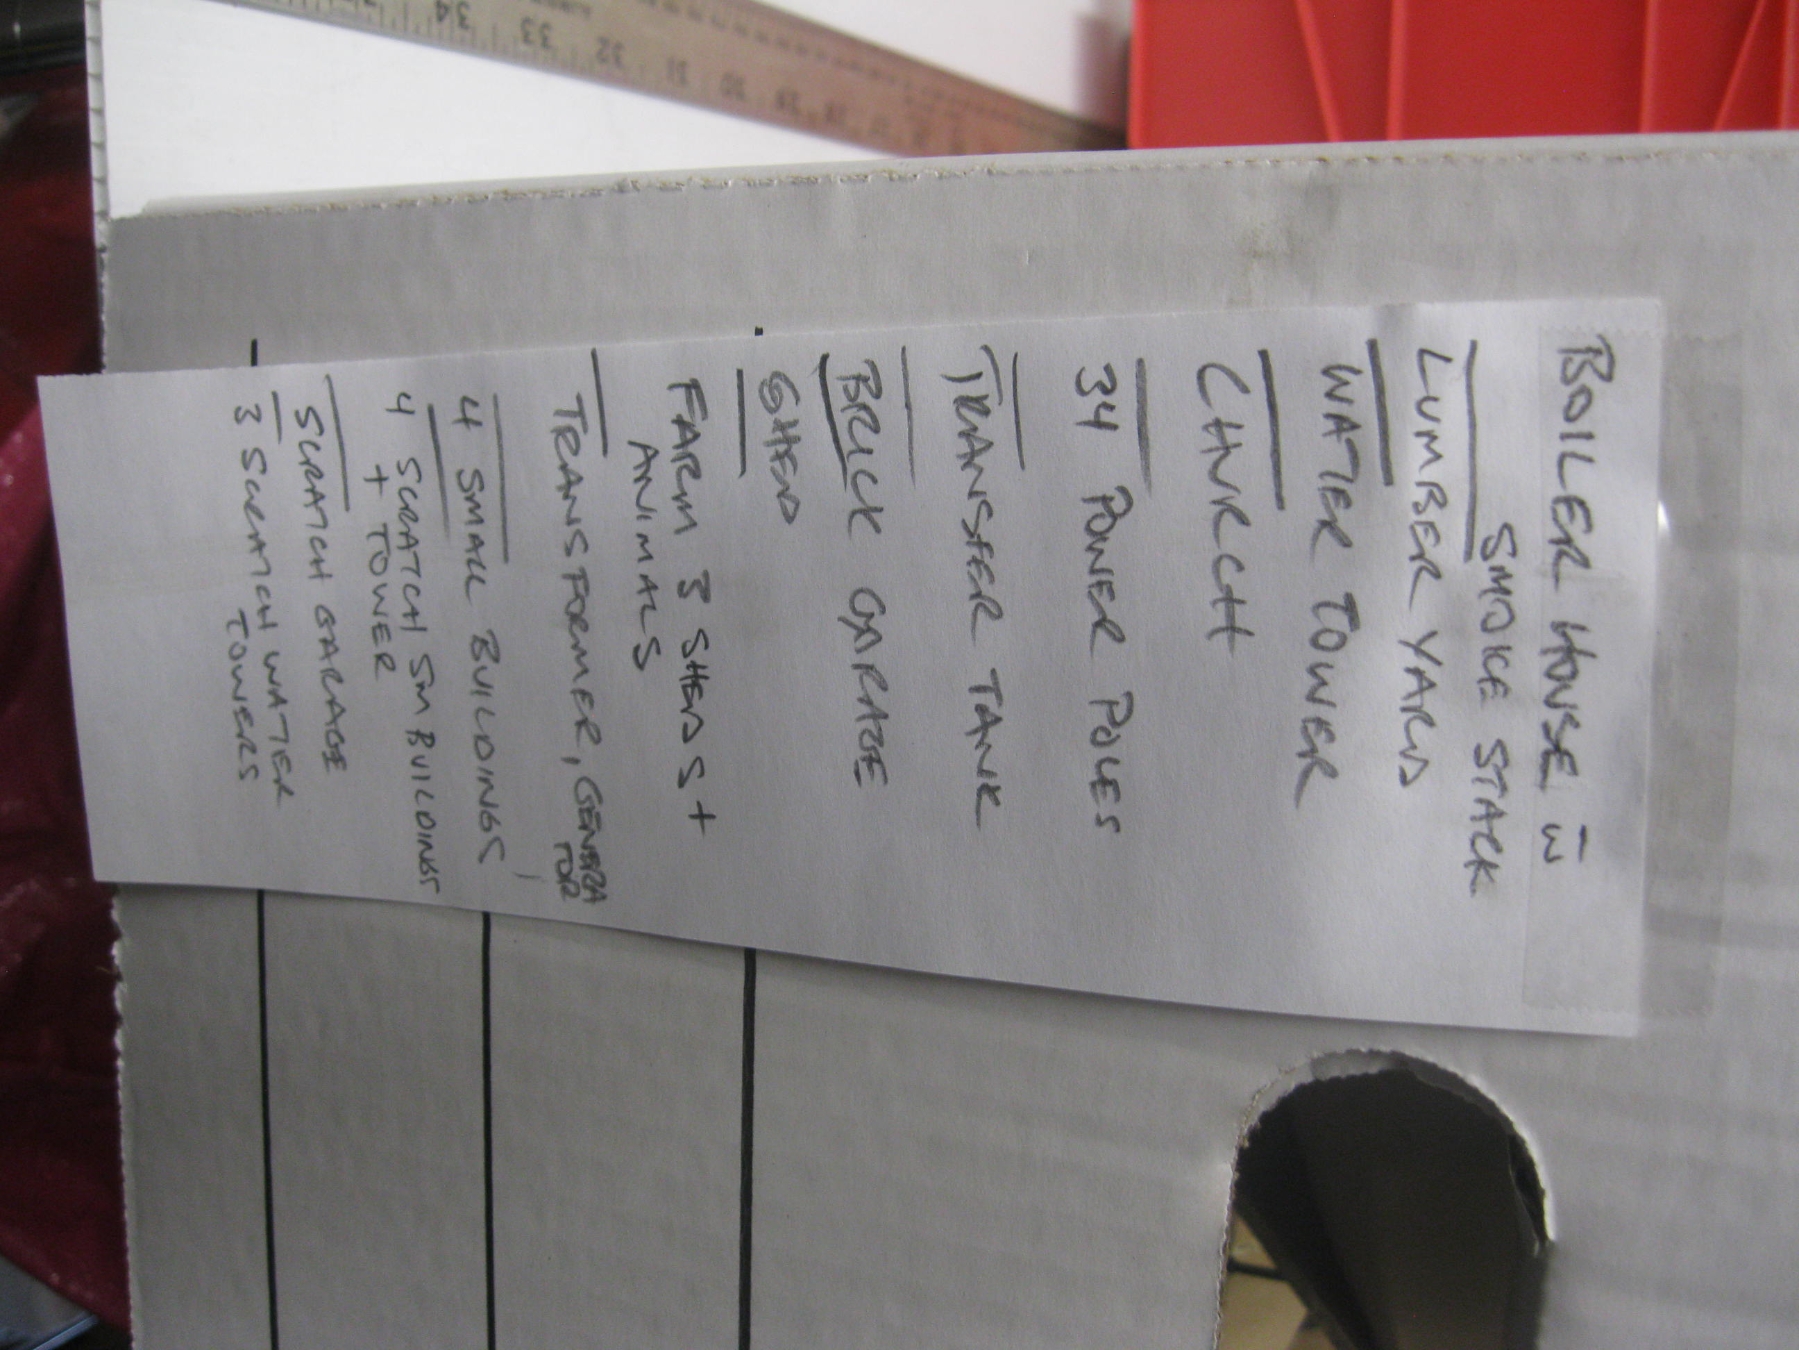 BOILER HOUSE W
SMOKE STACK
LUMBER YARD
WATER TOWER
CHURCH
34 POWER POLES
TRANSFER TANK
BRICK GARAGE
SHED
FARM 3 SHEDS +
ANIMALS
TRANSFORMER, GENERA
TOR
4 SMALL BUILDINGS
4 SCRATCH SM BUILDINGS
+ TOWER
SCRATCH GARAGE
3 SCRATCH WATER
TOWERS
34 33 32 31 30 29 28 27